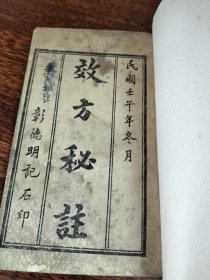 民國壬午年冬月
效方秘註
彰德明記石印